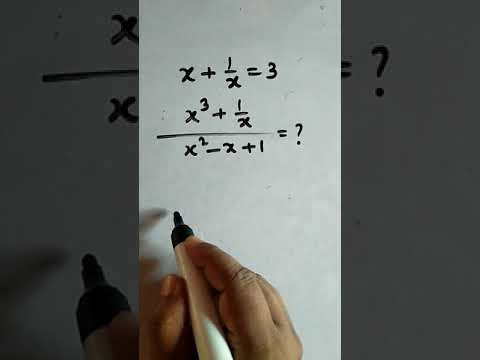 x + 1/x = 3
x³ + 1/x
x² - x + 1 = ?